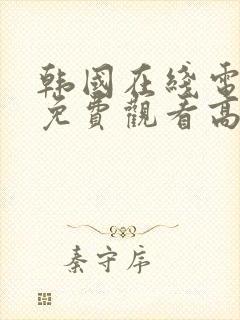 韩國在綫電
免費觀看高
秦守序